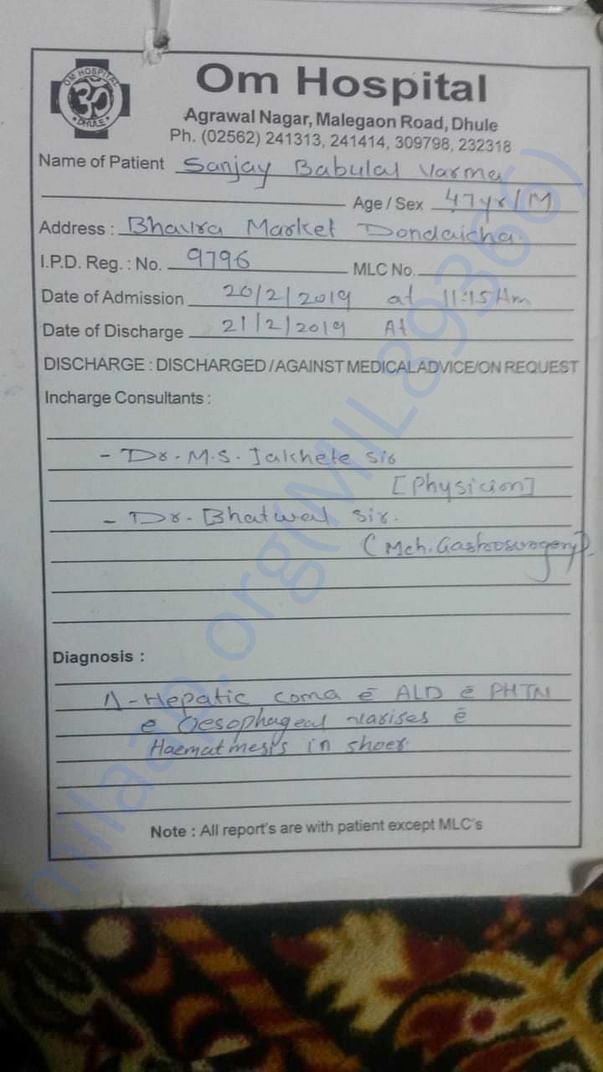 OM HOSPITAL
DHULE
Om Hospital
Agrawal Nagar, Malegaon Road, Dhule
Ph. (02562) 241313, 241414, 309798, 232318
Name of Patient Sanjay Babulal Varma
Age / Sex 47yr/M
Address : Market Dondaicha
I.P.D. Reg. : No. 9796 MLC No.
Date of Admission 20/2/2019 at 11:15 Am
Date of Discharge 21/2/2019 At
DISCHARGE : DISCHARGED / AGAINST MEDICAL ADVICE/ON REQUEST
Incharge Consultants :
- Dr. M.S. Jakhete sir
[Physicion]
- Dr. Bhatwal sir.
(Mch. Gastrosurgery).
Diagnosis :
Δ - Hepatic coma c̄ ALD c̄ PHTN
c̄ Oesophageal varises c̄
Haematmesis in
Note : All report's are with patient except MLC's
milaap.org(MIL89366)